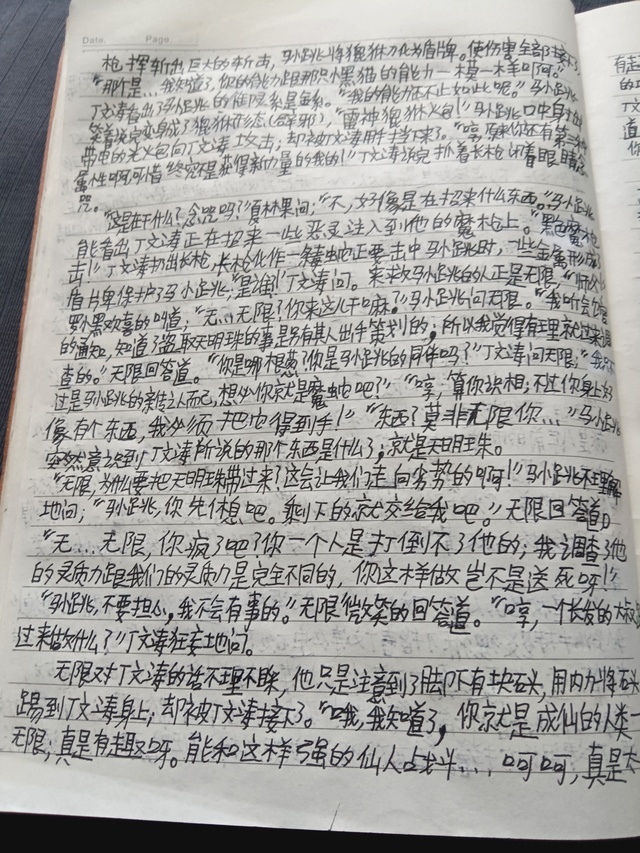 Date. Page.
枪挥斩出巨大的斩击,马小跳将猩猕刀化为盾牌。使伤害全部接下,
"那个是…我知道了,你的能力跟那只小黑猫的能力一模一样啊。"
丁文涛看出了马小跳的 系是金系。"我的能力还不止如此呢。"马小跳
笑着说完变身成了猩猕形态 ,"雷神猩猕火包!"马小跳口中身寸出
带电的光火包向丁文涛攻击;却被丁文涛用手挡下来了。"哼,原来你还有第二种
属性啊,可惜终究不是获得新力量的我的!"丁文涛说完扒着长枪闭着眼睛念
咒。
"这是在干什么?念咒吗?"夏林果问;"不,好像是在招来什么东西。"马小跳
能看出丁文涛正在招来一些恶灵注入到他的魔枪上。"黑色魔枪
击!"丁文涛扔出长枪,长枪化作一条毒蛇正要击中马小跳时,一些金属形成
盾片卑保护了马小跳,"是谁!"丁文涛问。来救马小跳的人正是无限,"师父!"
罗小黑欢喜的叫道,"无…无限?你来这儿干嘛。"马小跳问无限。"我听会馆
的通知,知道了盗取天明珠的事是另有其人出手策划的;所以我觉得有理就过来调
查的。"无限回答道。"你是哪根葱?你是马小跳的同伴吗?"丁文涛问无限;"我只不
过是马小跳的亲传之人而已,想必你就是魔蛇吧?""哼,算你识相;不过你身上好
像有个东西,我必须把它得到手!""东西?莫非无限你…"马小跳
突然意识到丁文涛所说的那个东西是什么了,就是天明王朱。
"无限,为什么要把天明珠带过来?这会让我们走向劣势的啊!"马小跳不理解
地问;"马小跳,你先休息吧。剩下的就交给我吧。"无限回答道。
"无…无限,你疯了吧?你一个人是打倒不了他的;我调查了他
的灵质力跟我们的灵质力是完全不同的,你这样做岂不是送死呀!"
"马小跳,不要担心,我不会有事的。"无限微笑的回答道。"哼,一个长发的大叔
过来做什么?"丁文涛狂妄地问。
无限对丁文涛的话不理不睬,他只是注意到了脚下有块石头,用内力将石头
踢到丁文涛身上;却被丁文涛接下了。"哦,我知道了,你就是成仙的人类—
无限;真是有趣呀。能和这样强的仙人占戈斗…呵呵,真是太